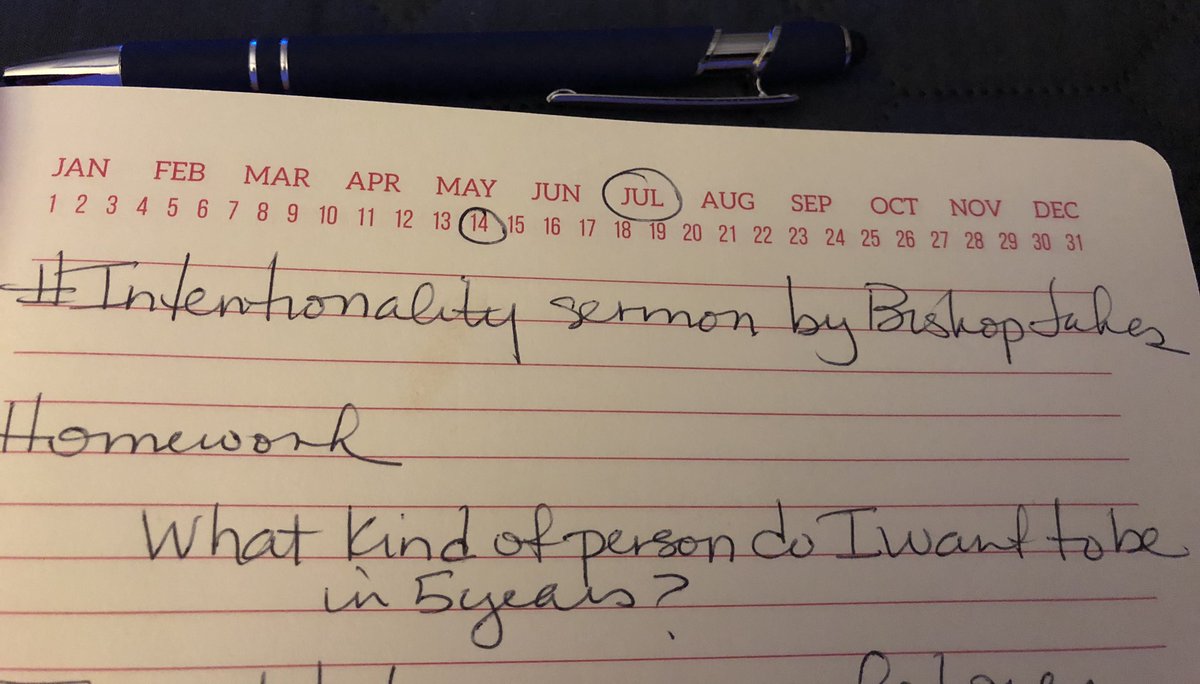 JAN FEB MAR APR MAY JUN JUL AUG SEP OCT NOV DEC
1 2 3 4 5 6 7 8 9 10 11 12 13 14 15 16 17 18 19 20 21 22 23 24 25 26 27 28 29 30 31
#Intentionality sermon by Bishop Jakes
Homework
What kind of person do I want to be
in 5 years?